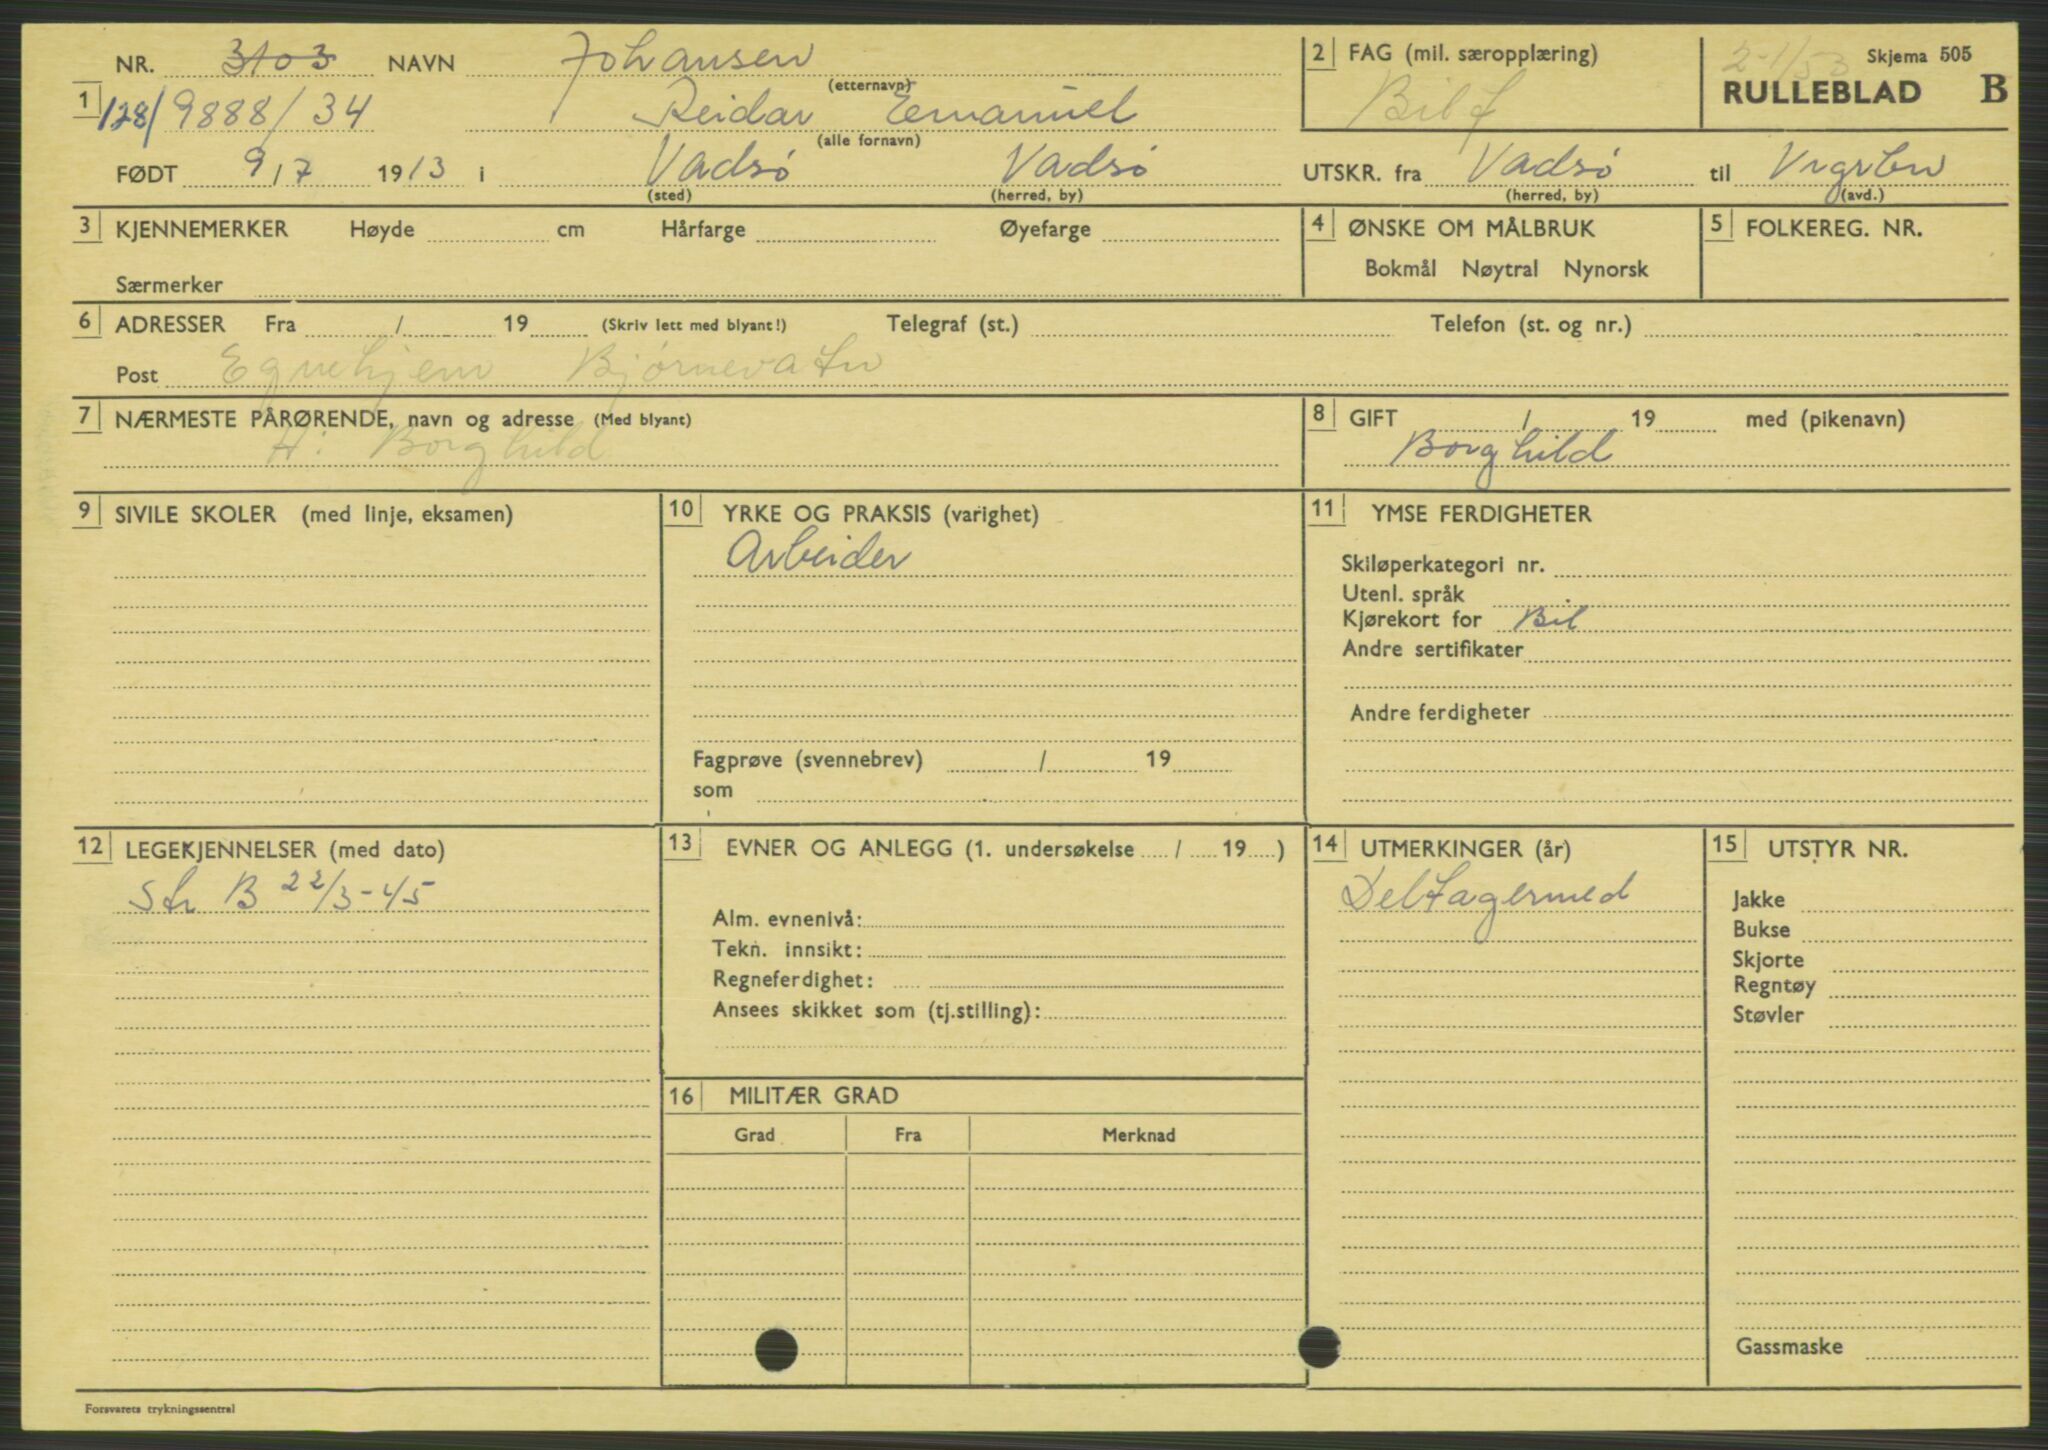 NR. 3103 NAVN Johansen 2 FAG (mil. særopplæring) 2-1/53 Skjema 505
(etternavn) Bilf RULLEBLAD B
1 128/9888/34 Reidar Emanuel
(alle fornavn)
FØDT 9/7 1913 i Vadsø Vadsø UTSKR. fra Vadsø til Vrgrbn
(sted) (herred, by) (herred, by) (avd.)
3 KJENNEMERKER Høyde cm Hårfarge Øyefarge 4 ØNSKE OM MÅLBRUK 5 FOLKEREG. NR.
Bokmål Nøytral Nynorsk
Særmerker
6 ADRESSER Fra / 19 (Skriv lett med blyant!) Telegraf (st.) Telefon (st. og nr.)
Post Egnehjem Bjørnevatn
7 NÆRMESTE PÅRØRENDE, navn og adresse (Med blyant) 8 GIFT / 19 med (pikenavn)
H: Borghild Borghild
9 SIVILE SKOLER (med linje, eksamen) 10 YRKE OG PRAKSIS (varighet) 11 YMSE FERDIGHETER
Arbeider
Skiløperkategori nr.
Utenl. språk
Kjørekort for Bil
Andre sertifikater
Andre ferdigheter
Fagprøve (svennebrev) / 19
som
12 LEGEKJENNELSER (med dato) 13 EVNER OG ANLEGG (1. undersøkelse / 19 ) 14 UTMERKINGER (år) 15 UTSTYR NR.
Str B 22/3-45 Deltagermed
Jakke
Alm. evnenivå:
Bukse
Tekn. innsikt:
Skjorte
Regneferdighet:
Regntøy
Ansees skikket som (tj.stilling):
Støvler
16 MILITÆR GRAD
Grad Fra Merknad
Gassmaske
Forsvarets trykningssentral